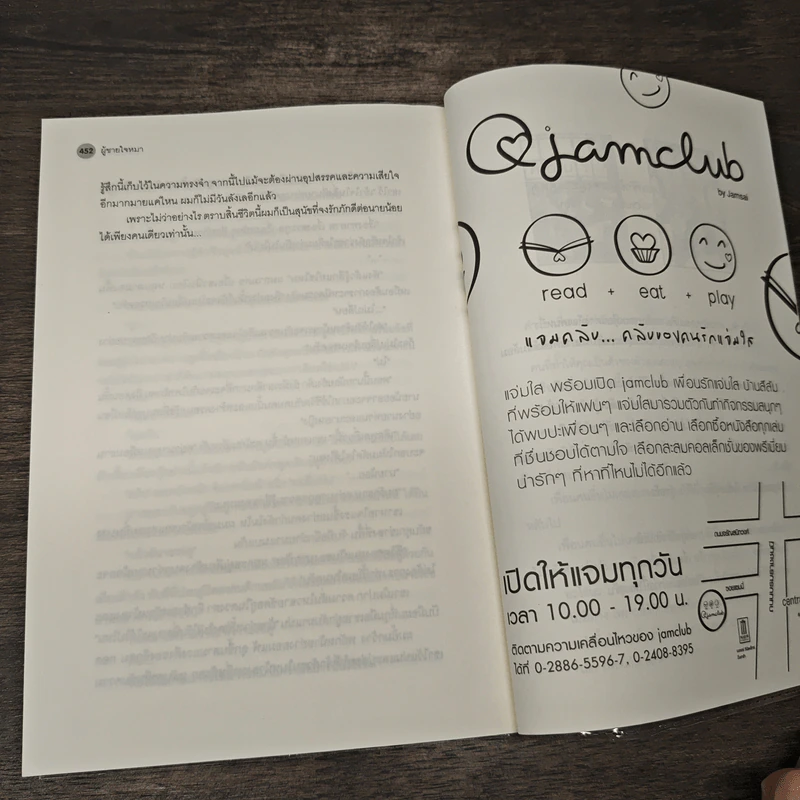 452 ผู้ชายใจหมา
รู้สึกนี้เก็บไว้ในความทรงจำ จากนี้ไปแม้จะต้องผ่านอุปสรรคและความเสียใจ
อีกมากมายแค่ไหน ผมก็ไม่มีวันลังเลอีกแล้ว
เพราะไม่ว่าอย่างไร ตราบสิ้นชีวิตนี้ผมก็เป็นสุนัขที่จงรักภักดีต่อนายน้อย
ได้เพียงคนเดียวเท่านั้น...
jamclub
by Jamsai
read + eat + play
แจมคลับ... คลับของคนรักแจ่มใส
แจ่มใส พร้อมเปิด jamclub เพื่อนรักแจ่มใส บ้านสีสัน
ที่พร้อมให้แฟนๆ แจ่มใสมารวมตัวกันทำกิจกรรมสนุกๆ
ได้พบปะเพื่อนๆ และเลือกอ่าน เลือกซื้อหนังสือทุกเล่ม
ที่ชื่นชอบได้ตามใจ เลือกสะสมคอลเล็กชั่นของพรีเมี่ยม
น่ารักๆ ที่หาที่ไหนไม่ได้อีกแล้ว
ถนนจรัญสนิทวงศ์
ถนนบรมราชชนนี
เปิดให้แจมทุกวัน
เวลา 10.00 - 19.00 น.
ติดตามความเคลื่อนไหวของ jamclub
ได้ที่ 0-2886-5596-7, 0-2408-8395